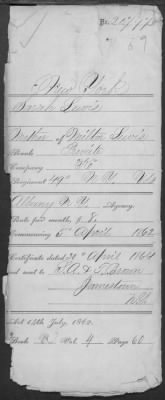 No.
New York
Sarah Lewis
Mother of Milton Lewis
Rank Private
Company
Regiment 49th N.Y. Vols
Albany N.Y. Agency.
Rate per month, $ 8.
Commencing 5th April 1862
Certificate dated 21st April 1864
and sent to
Jamestown
N.Y.
Act 14th July, 1862.
Book B Vol. 4 Page 60